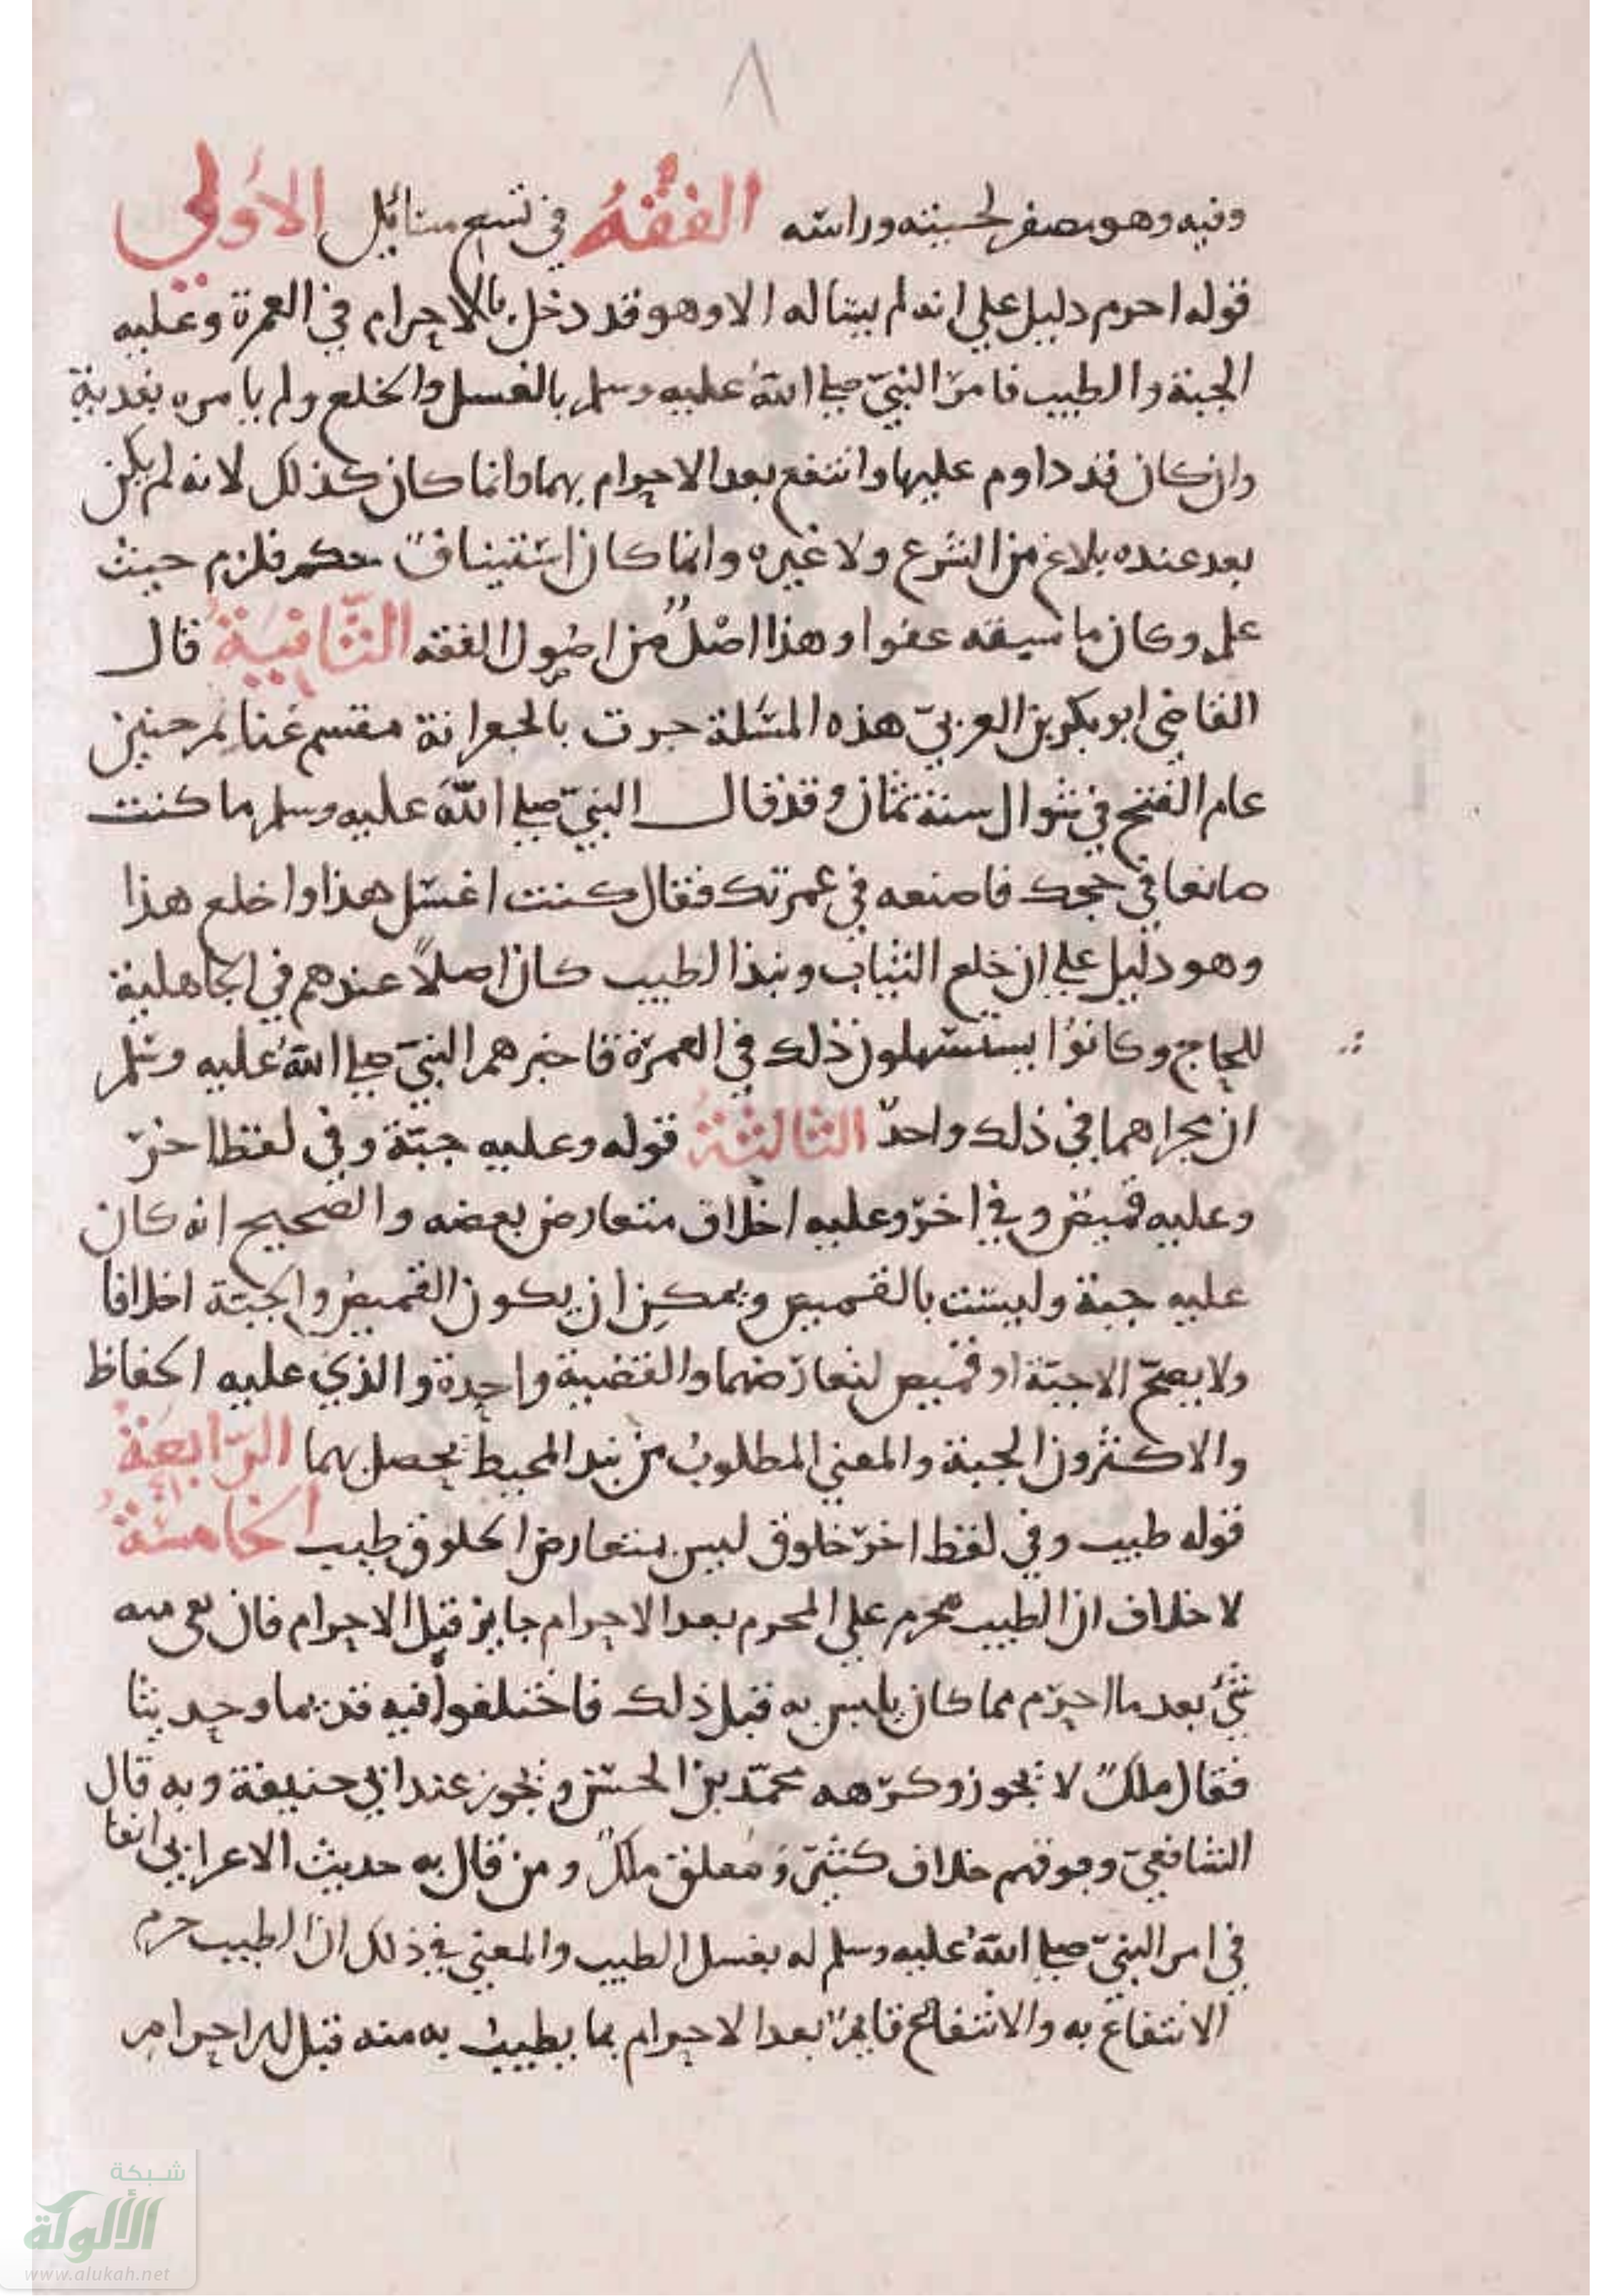 ٨
وفيه وهو مصفر لحيته وراسه الفقه في تسع مسائل الاولي
قوله احرم دليل علي انه لم يساله الا وهو قد دخل بالاحرام في العمرة وعليه
الجبة والطيب فامر النبيّ صلي اللهُ عليه وسلم بالغسل والخلع ولم يامره بفدية
وان كان قد داوم عليها وانتفع بعد الاحرام بهما وانما كان كذلك لانه لم يكن
بعد عنده بلاغ من الشرع ولا غيره وانما كان استينافً حكم فلزم حيث
علم وكان ما سبقه عفوا وهذا اصلٌ من اصول الفقه الثّانية قال
القاضي ابو بكر بن العربيّ هذه المسئلة جرت بالجعرانة مقسم غنائم حنين
عام الفتح في شوال سنة ثمان وقد قال النبيّ صلي اللهُ عليه وسلم ما كنت
صانعا في حجك فاصنعه في عمرتك فقال كنت اغسل هذا واخلع هذا
وهو دليل علي ان خلع الثياب ونبذ الطيب كان اصلاً عندهم في الجاهلية
للحاج وكانوا يستسهلون ذلك في العمرة فاخبرهم النبيّ صلي اللهُ عليه وسلم
ان مجراهما في ذلك واحدٌ الثالثة قوله وعليه جبّة وفي لفظ اخر
وعليه قميص وفي اخر وعليه اخلاق متعارض بعضه والصحيح انه كان
عليه جبة وليست بالقميص ويمكن ان يكون القميص والجبّة اخلاقا
ولا يصحّ الا جبّة او قميص لتعارضهما والقضية واحدة والذي عليه الحفاظ
والاكثرون الجبة والمعني المطلوب من نبذ المحيط يحصل بهما الرّابعة
قوله طيب وفي لفظ اخر خلوق ليس بمتعارض الخلوق طيب الخامسة
لا خلاف ان الطيب محرم علي المحرم بعد الاحرام جايز قبل الاحرام فان بقي منه
شئ بعد ما احرم مما كان يلبس به قبل ذلك فاختلفوا فيه قديما وحديثا
فقال ملكٌ لا يجوز وكرهه محمّد بن الحسن ويجوز عند ابي حنيفة وبه قال
الشافعيّ وفوقهم خلاف كثيرٌ ومعلق ملكٌ ومن قال به حديث الاعرابي انفا
في امر النبيّ صلي اللهُ عليه وسلم له بغسل الطيب والمعني في ذلك ان الطيب حرم
الانتفاع به والانتفاع قايمٌ بعد الاحرام بما يطيب به منه قبل الاحرام
شبكة
الألوكة
www.alukah.net